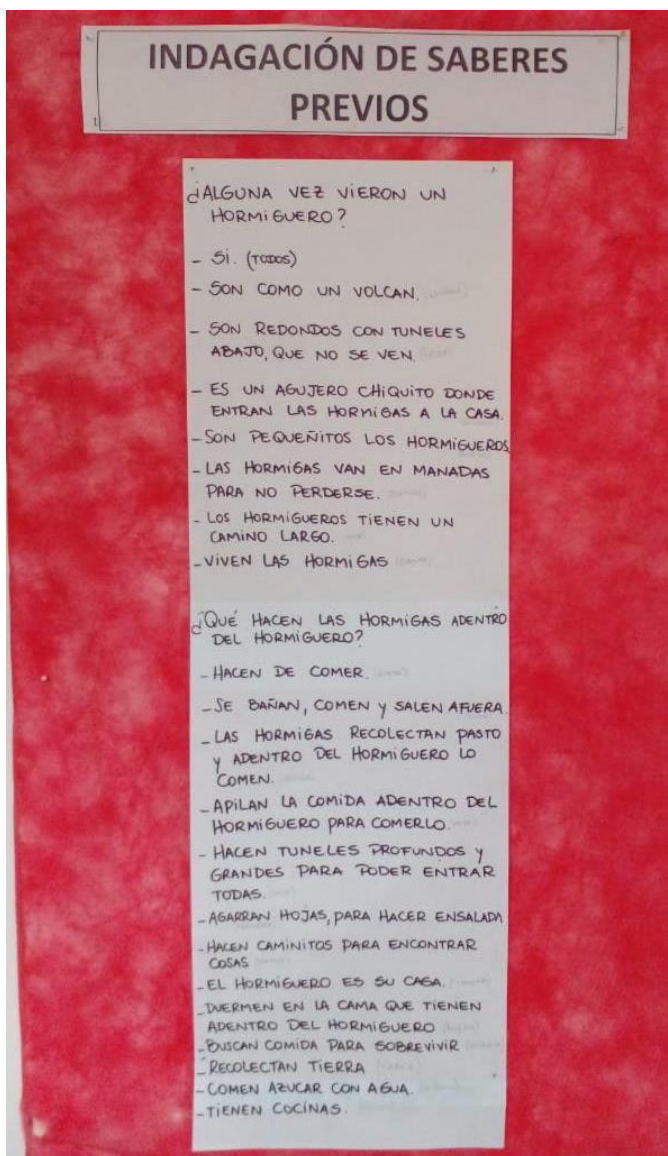 INDAGACIÓN DE SABERES
PREVIOS
¿ALGUNA VEZ VIERON UN
HORMIGUERO?
- SI. (TODOS)
- SON COMO UN VOLCAN.
- SON REDONDOS CON TUNELES
ABAJO, QUE NO SE VEN.
- ES UN AGUJERO CHIQUITO DONDE
ENTRAN LAS HORMIGAS A LA CASA.
- SON PEQUEÑITOS LOS HORMIGUEROS
- LAS HORMIGAS VAN EN MANADAS
PARA NO PERDERSE.
- LOS HORMIGUEROS TIENEN UN
CAMINO LARGO.
- VIVEN LAS HORMIGAS
¿QUÉ HACEN LAS HORMIGAS ADENTRO
DEL HORMIGUERO?
- HACEN DE COMER.
- SE BAÑAN, COMEN Y SALEN AFUERA.
- LAS HORMIGAS RECOLECTAN PASTO
Y ADENTRO DEL HORMIGUERO LO
COMEN.
- APILAN LA COMIDA ADENTRO DEL
HORMIGUERO PARA COMERLO.
- HACEN TUNELES PROFUNDOS Y
GRANDES PARA PODER ENTRAR
TODAS.
- AGARRAN HOJAS, PARA HACER ENSALADA
- HACEN CAMINITOS PARA ENCONTRAR
COSAS
- EL HORMIGUERO ES SU CASA.
- DUERMEN EN LA CAMA QUE TIENEN
ADENTRO DEL HORMIGUERO
- BUSCAN COMIDA PARA SOBREVIVIR
- RECOLECTAN TIERRA
- COMEN AZUCAR CON AGUA.
- TIENEN COCINAS.